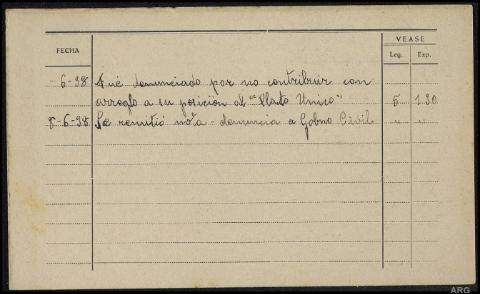 VEASE
FECHA
Leg. Exp.
-6-38 Fué denunciado por no contribuir con
arreglo a su posición al "Plato Unico" 5 130
8-6-38 Se remitió nota-denuncia a Gobno Civil " "
ARG